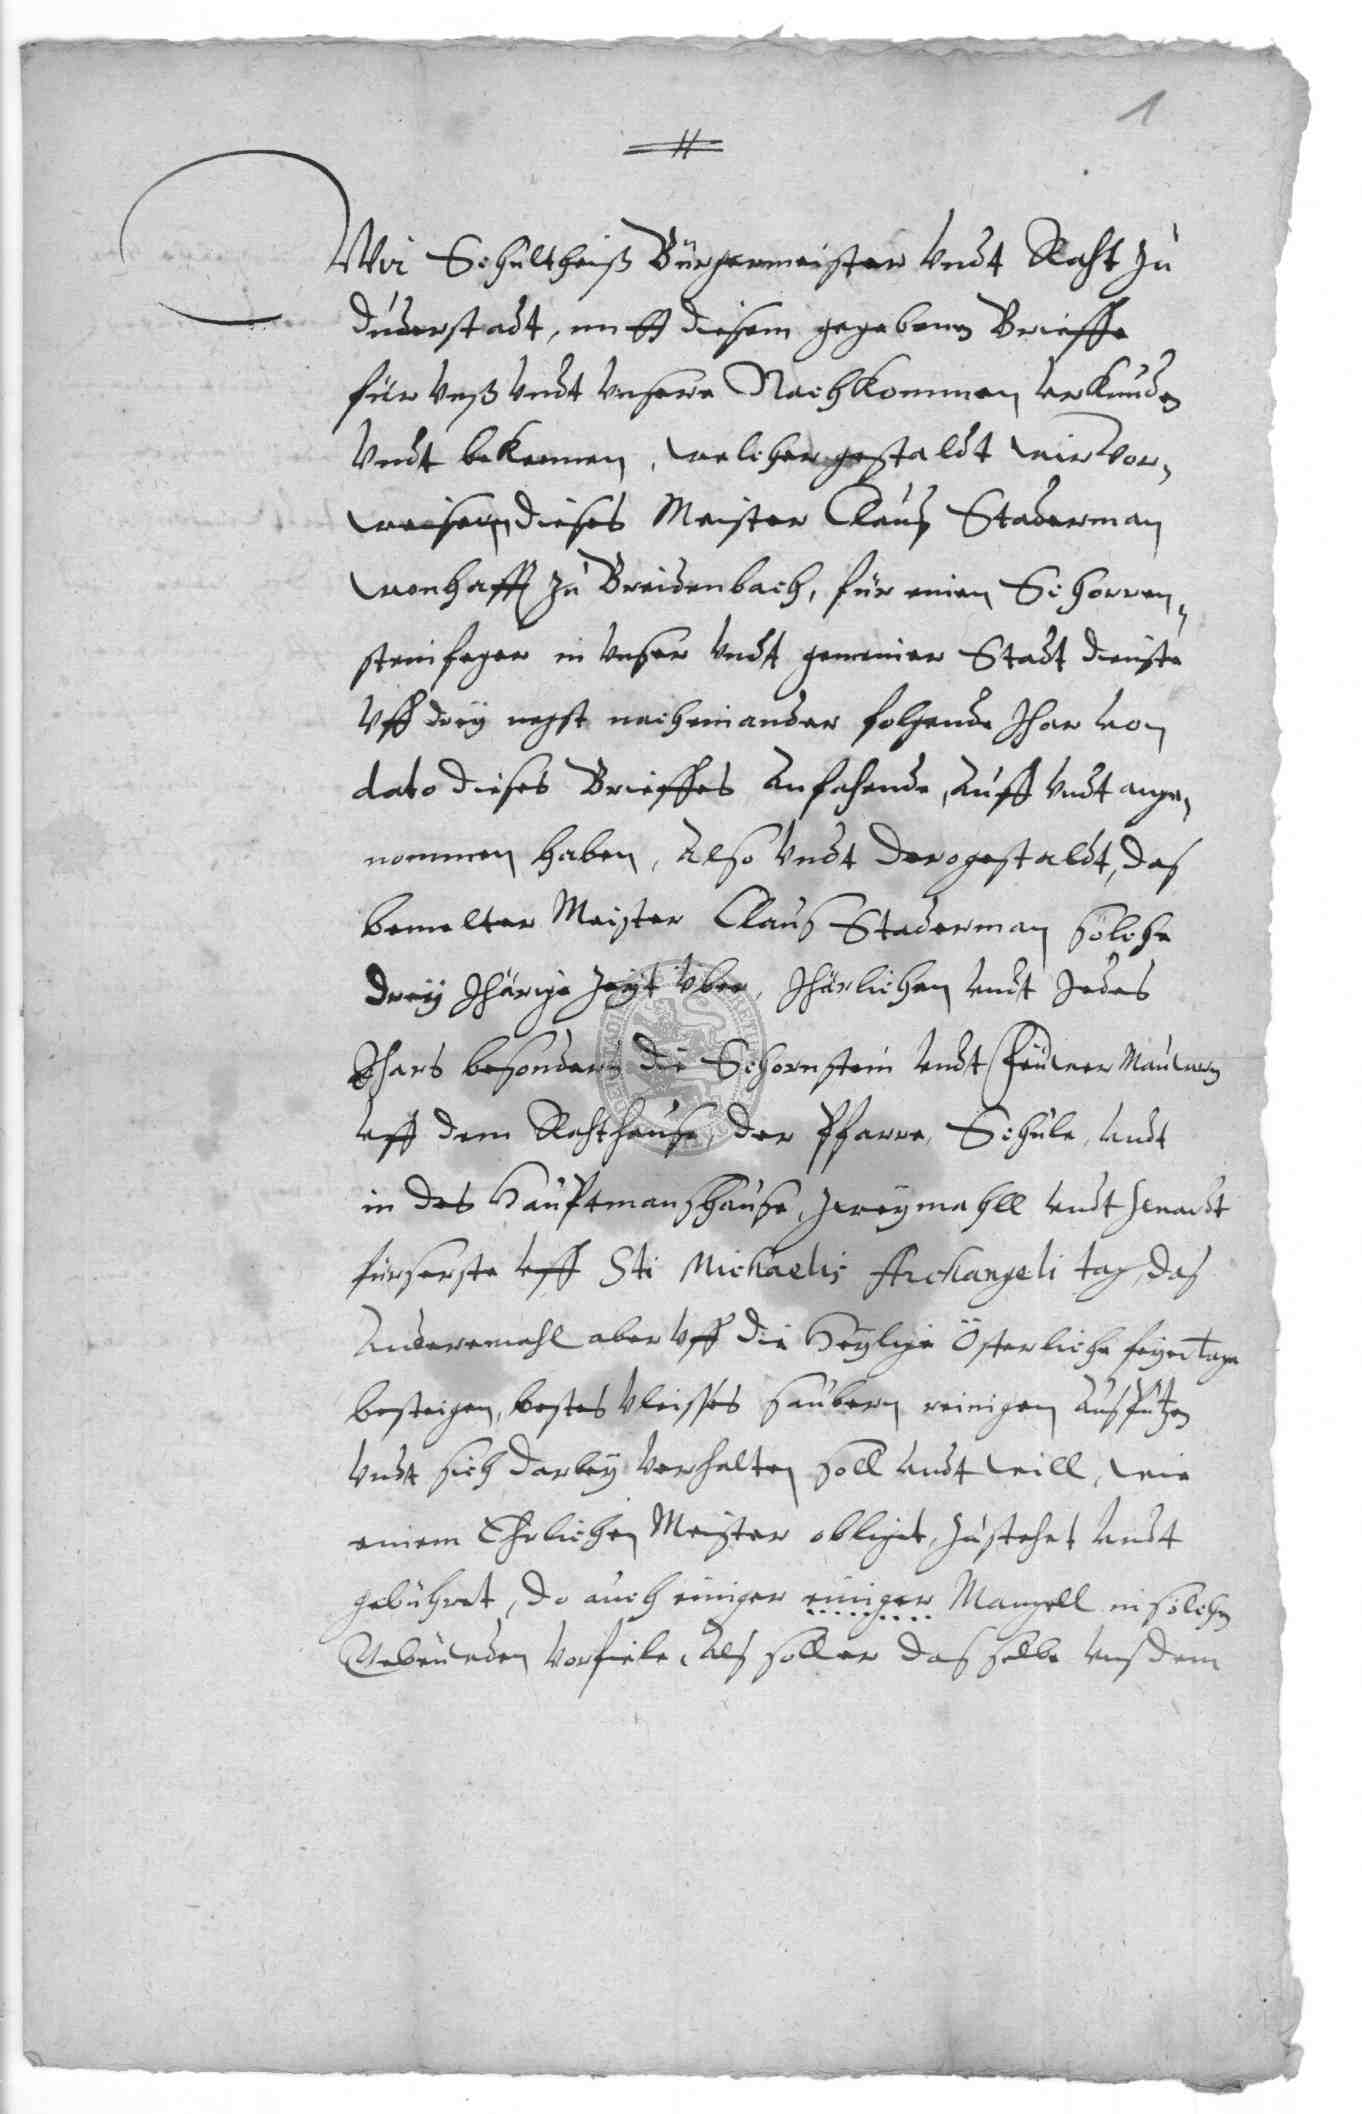 1
Wir Schultheiß Bürgermeister Undt Raht zu
Duderstadt, mitt diesem gegebenen Brieffe
für Unß Undt Unsere Nachkommen urkunden
Undt bekennen, welicher gestaldt wir Vor„
weisern dieses Meister Clauß Staderman
wonhafft zu Breidenbach, für einen Schorren„
steinfeger in Unser Undt gemeiner Stadt dienste
Uff drey negst nacheinander folgende Jhar von
dato dieses Brieffes Anfahende, Auff Undt ange„
nommen haben, Also Undt derogestaldt, das
bemelter Meister Claus Staderman solche
Drey Jhärige Zeyt Uber, Jhärlichen undt Jedes
Jhars besonders die Schornstein undt Feuwer Mauwern
uff dem Rahthause, der Pfarre, Schule, undt
in des Hauptmanshause, Zweymahll undt
fürs erste uff Sti Michaelis Archangeli tag, das
Anderemahl aber Uff die Heylige Österliche feyertage
besteigen, bestes Vleisses saubern reinigen Ausputzen
Undt sich darbey Verhalten soll undt will, wie
einem Ehrlichen Meister obliget, Zustehet undt
gebühret, Do auch einiger einiger Mangell in solchen
Gebeuweden Vorfiele, Als soll er dasselbe uns dem